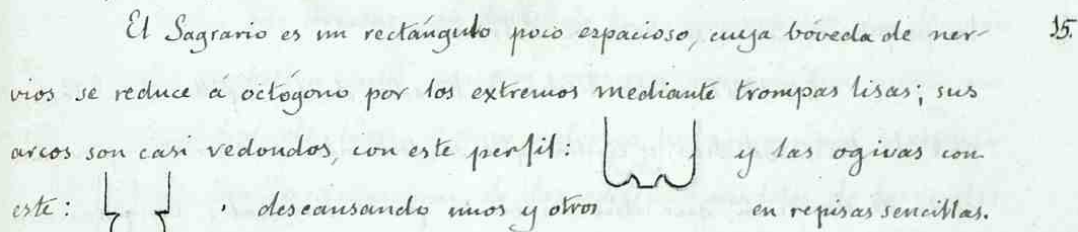 El Sagrario es un rectángulo poco espacioso, cuya bóveda de ner- 15.
vios se reduce á octógono por los extremos mediante trompas lisas; sus
arcos son casi redondos, con este perfil: y las ogivas con
este: . descansando unos y otros en repisas sencillas.